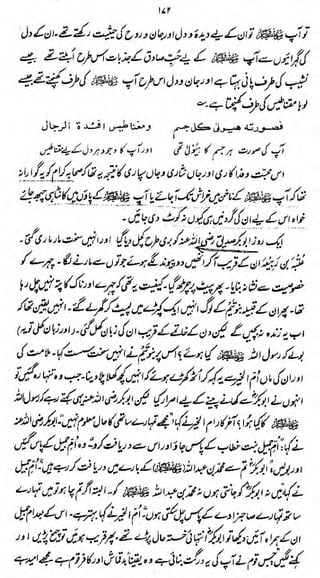 ۱۷۲
تو آپ ﷺ تو ان کے لیے دیدہ و دل اور جان و روح کی حیثیت رکھتے تھے۔ ان کے دل
کی گہرائیوں سے آپ ﷺ کے لیے حُبِّ صادق کے جذبات اس طرح اُبلتے تھے جیسے
نشیب کی طرف پانی بہتا ہے اور جان و دل اس طرح آپ ﷺ کی طرف کھنچتے تھے جیسے
لوہا مقناطیس کی طرف کھنچتا ہے۔
فصورته هیولی کل جسم ومغناطیس افئدة الرجال
آپ کی صورت ہر جسم کا ہیولیٰ تھی اور آپ کا وجود ہر دل کے لیے مقناطیس
اس محبت و فداکاری اور جاں نثاری و جاں سپاری کا نتیجہ یہ تھا کہ صحابہ کرام کو یہ گوارا نہ
تھا کہ آپ ﷺ کے ناخن میں خراش تک آجائے یا آپ ﷺ کے پاؤں میں کانٹا ہی چبھ جائے
خواہ اس کے لیے ان کی گردنیں ہی کیوں نہ کوٹ دی جائیں۔
ایک روز ابوبکر صدیق رضی اللہ عنہ کو بری طرح کچل دیا گیا اور انہیں سخت مار ماری گئی۔
عُتبہ بن ربیعہ ان کے قریب آکر انہیں دو پیوند لگے ہوئے جوتوں سے مارنے لگا۔ چہرے کو
خصوصیت سے نشانہ بنایا۔ پھر پیٹ پر چڑھ گیا۔ کیفیت یہ تھی کہ چہرے اور ناک کا پتہ نہیں چل رہا
تھا۔ پھر ان کے قبیلہ بنو تَیم کے لوگ انہیں ایک کپڑے میں لپیٹ کر گھر لے گئے۔ انہیں یقین تھا کہ
اب یہ زندہ نہ بچیں گے لیکن دن کے خاتمے کے قریب ان کی زبان کھل گئی۔ (اور زبان کھلی تو یہ)
بولے کہ رسول اللہ ﷺ کیا ہوئے؟ اس پر بنو تَیم نے انہیں سخت سست کہا۔ ملامت کی
اور ان کی ماں اُمّ الخیر سے یہ کہہ کر اٹھ کھڑے ہوئے کہ انہیں کچھ کھلا پلا دینا۔ جب وہ تنہا رہ گئیں تو
انہوں نے ابوبکرؓ سے کھانے پینے کے لیے اصرار کیا لیکن ابوبکر رضی اللہ عنہ یہی کہتے رہے کہ رسول اللہ
ﷺ کا کیا ہُوا؟ آخرکار ام الخیر نے کہا: "مجھے تمہارے ساتھی کا حال معلوم نہیں۔" ابوبکر رضی اللہ عنہ
نے کہا: "اُمّ جمیل بنت خطاب کے پاس جاؤ اور اس سے دریافت کرو۔" وہ اُم جمیل کے پاس گئیں
اور بولیں: "ابوبکرؓ تم سے محمد بن عبداللہ (ﷺ) کے بارے میں دریافت کر رہے ہیں۔" اُم جمیل
نے کہا: "میں نہ ابوبکرؓ کو جانتی ہوں نہ محمد بن عبداللہ ﷺ کو۔ البتہ اگر تم چاہو تو میں تمہارے
ساتھ تمہارے صاحبزادے کے پاس چل سکتی ہوں۔" اُم الخیر نے کہا بہتر ہے۔ اس کے بعد ام جمیل
ان کے ہمراہ آئیں دیکھا تو ابوبکرؓ انتہائی خستہ حال پڑے تھے۔ پھر قریب ہوئیں تو چیخ پڑیں اور
کہنے لگیں: "جس قوم نے آپ کی یہ درگت بنائی ہے وہ یقیناً بدقماش اور کافر قوم ہے مجھے امید ہے